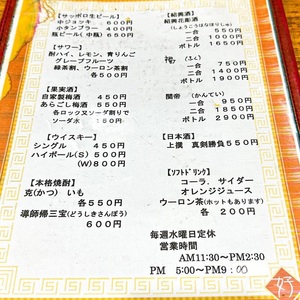 【サッポロ生ビール】
中ジョッキ 600
小タンブラー 400
瓶ビール(中瓶) 650
【サワー】
酎ハイ、レモン、青りんご
グレープフルーツ
緑茶割、ウーロン茶割
各500円
【果実酒】
自家製梅酒 450円
あらごし梅酒 550円
各ロックソーダ割りで
ソーダ水 180円
【ウイスキー】
シングル 450円
ハイボール(S) 500円
(W) 800円
【本格焼酎】
克(かつ) いも
各550円
導師帰三宝(どうしきさんぽう)
600円
【紹興酒】
紹興花彫酒
(しょうこうはなほりしゅ)
一合 550円
二合 1000円
ボトル 1650円
福 (ふく)
一合 750円
二合 1350円
ボトル 2050円
関帝 (かんてい)
一合 950
二合 1850
ボトル 2900円
【日本酒】
上撰 真剣勝負550円
【ソフトドリンク】
コーラ、サイダー
オレンジジュース
ウーロン茶(ホットもあります)
各 200円
毎週水曜日定休
営業時間
AM11:30~PM2:30
PM 5:00~PM9:00